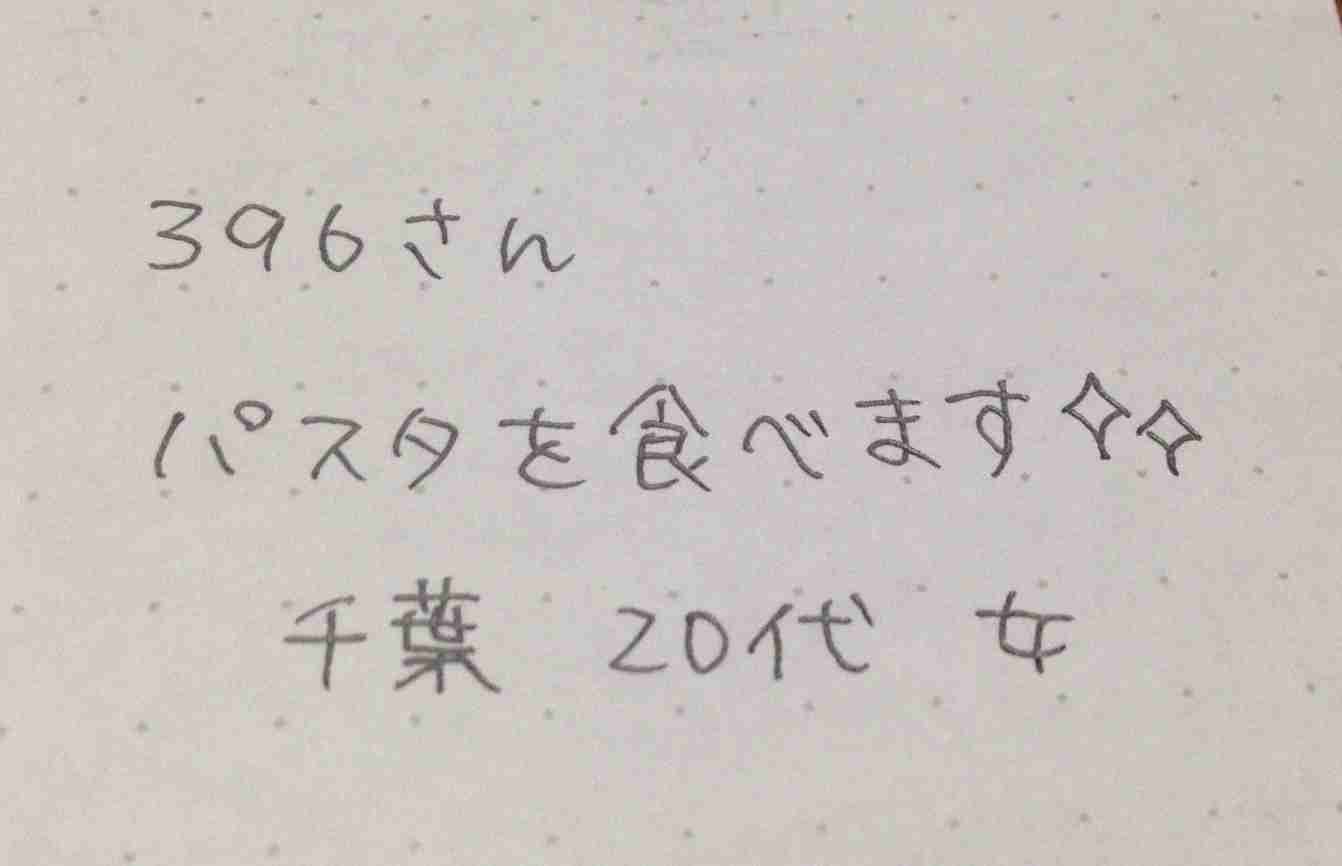 396さん
パスタを食べます✧✧
千葉 20代 女